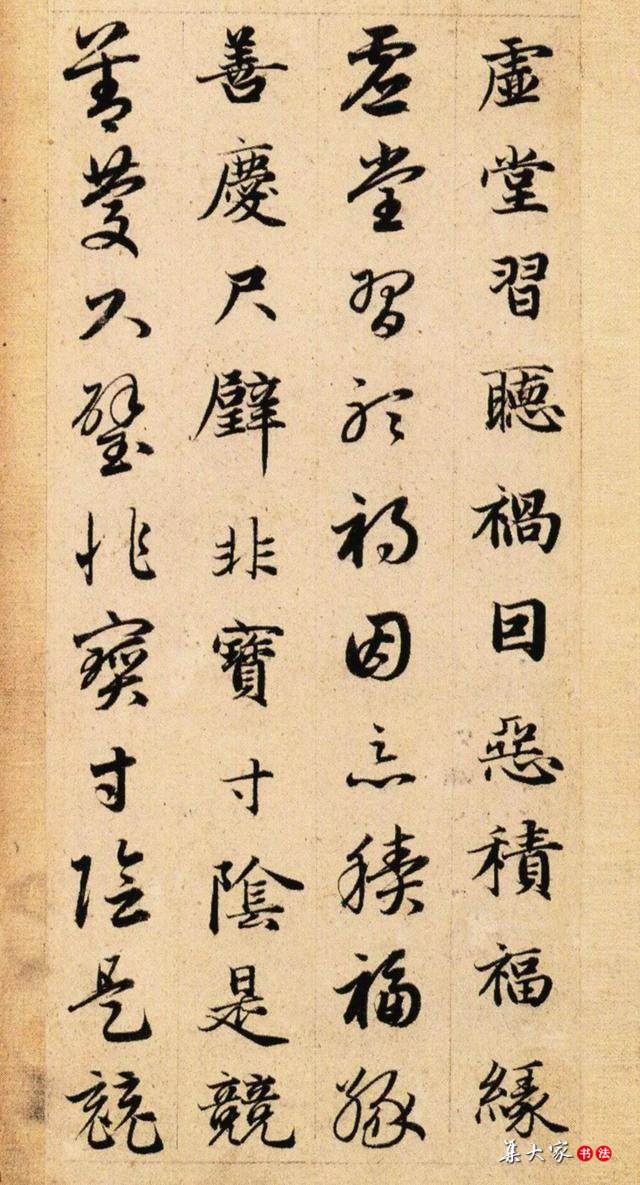 虛堂習聽禍因惡積福緣
虛堂習聽禍因惡積福緣
善慶尺璧非寶寸陰是競
善慶尺璧非寶寸陰是競
集大家书法